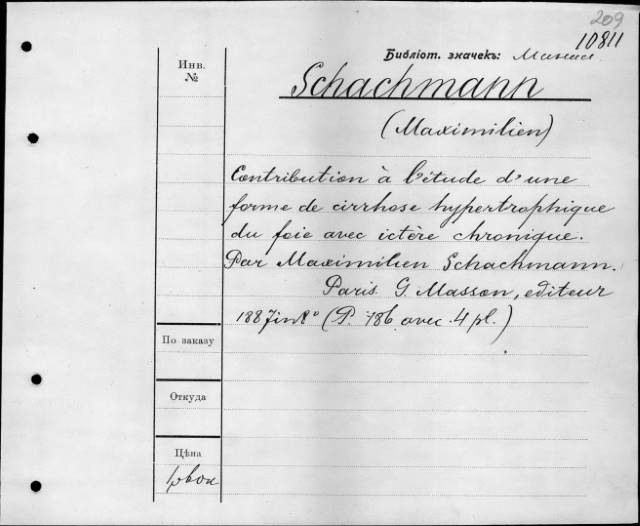 209
10811
Библіот. значекъ:
Инв.
№
Schachmann
(Maximilien)
Contribution à l'étude d'une
forme de cirrhose hypertrophique
du foie avec ictère chronique.
Par Maximilien Schachmann.
Paris G. Masson, editeur
1887 in 8° (P. 786 avec 4 pl.)
По заказу
Откуда
Цѣна